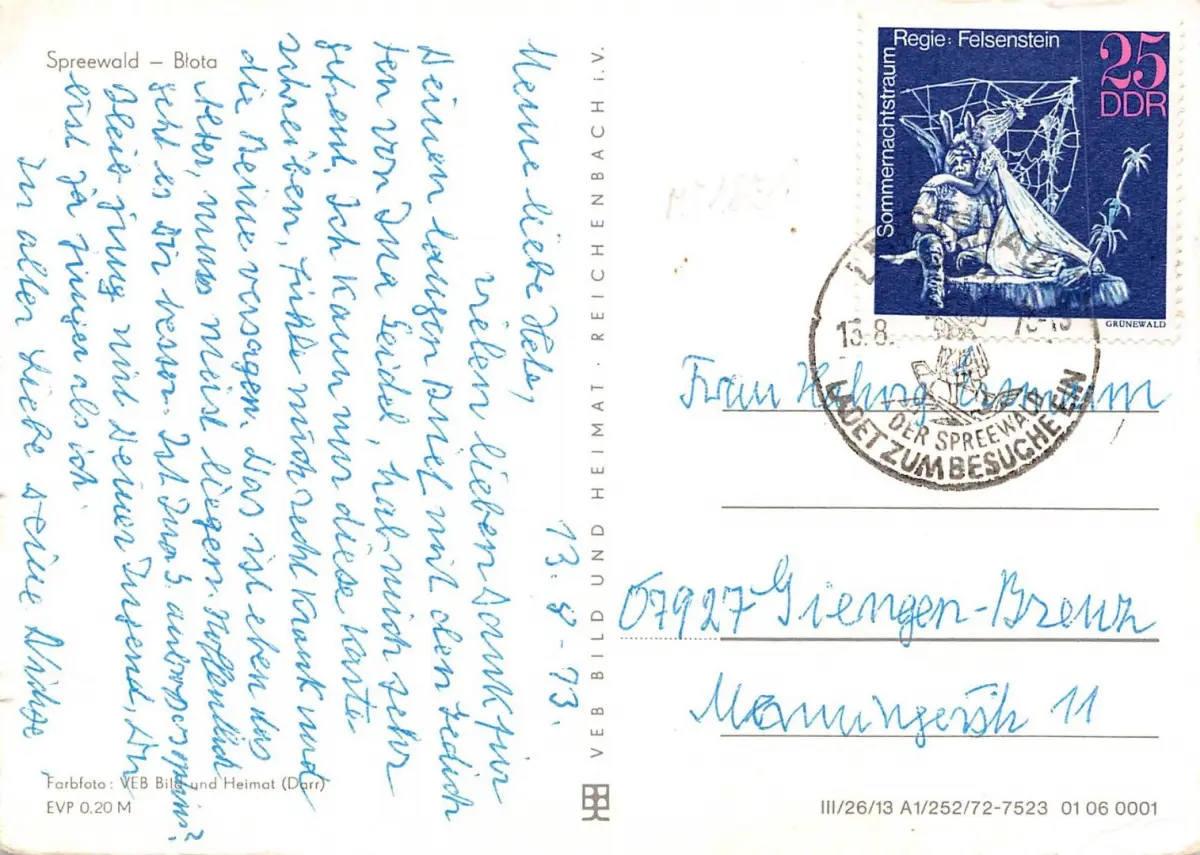 Spreewald – Błota
13. 8. 73.
Meine liebe Hela,
vielen lieben Dank für
Deinen langen Brief mit den Gedich
ten von Ina Seidel, hab mich sehr
gefreut. Ich kann nur diese Karte
schreiben, fühle mich recht krank und
die Beine versagen. Das ist eben das
Alter, muss meist liegen. Hoffentlich
geht es Dir besser. Ist Ina S.
Bleib jung mit Deiner Jugend, Du
bist ja jünger als ich.
In alter Liebe Deine
Farbfoto: VEB Bild und Heimat (Darr)
EVP 0,20 M
VEB BILD UND HEIMAT · REICHENBACH i. V.
Regie: Felsenstein
Sommernachtstraum
25
DDR
GRÜNEWALD
13.8.
DER SPREEWALD
LADET ZUM BESUCHE EIN
Frau
07927 Giengen-Brenz
Memmingerstr. 11
III/26/13 A1/252/72-7523 01 06 0001